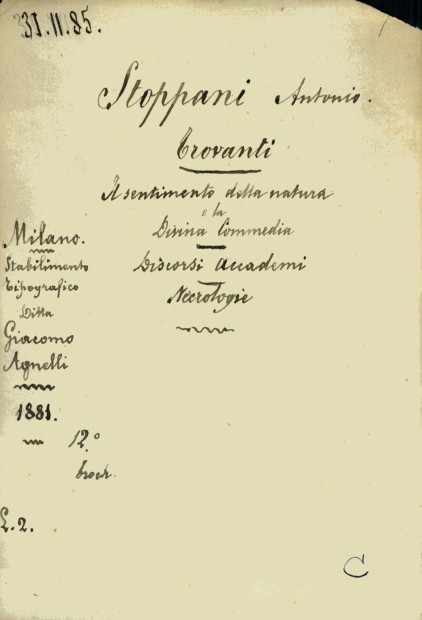 31.II.85.
Stoppani Antonio.
Trovanti
Il sentimento della natura
e la
Divina Commedia
Discorsi Accademi
Necrologie
Milano.
Stabilimento
Tipografico
Ditta
Giacomo
Agnelli
1881.
12.°
broch.
L. 2.
C